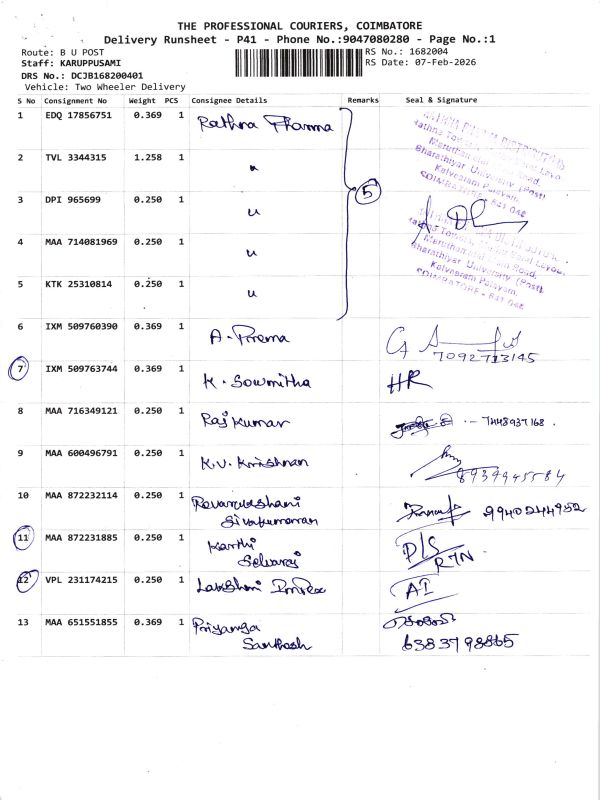 THE PROFESSIONAL COURIERS, COIMBATORE
Delivery Runsheet - P41 - Phone No.:9047080280 - Page No.:1
Route: B U POST
RS No.: 1682004
Staff: KARUPPUSAMI
RS Date: 07-Feb-2026
DRS No.: DCJB168200401
Vehicle: Two Wheeler Delivery
S No Consignment No Weight PCS Consignee Details Remarks Seal & Signature
1 EDQ 17856751 0.369 1 Rathna Pharma
2 TVL 3344315 1.258 1 "
3 DPI 965699 0.250 1 u
5
4 MAA 714081969 0.250 1 u
5 KTK 25310814 0.250 1 u
Bharathiyar University (Post)
Kalveeram Palayam,
COIMBATORE - 641 046
Bharathiyar University (Post)
Kalveeram Palayam,
COIMBATORE - 641 046
6 IXM 509760390 0.369 1 A. Prema
7092713145
7 IXM 509763744 0.369 1 K. Sowmitha HR
8 MAA 716349121 0.250 1 Raj Kumar 7448937168
9 MAA 600496791 0.250 1 K.V. Krishnan
8939945584
10 MAA 872232114 0.250 1
Sivakumaran
9940244952
11 MAA 872231885 0.250 1 Karthi
Selvaraj
D/S
RTN
12 VPL 231174215 0.250 1 Lakshmi Impex AI
13 MAA 651551855 0.369 1 Priyanga
Santhosh
6383798865